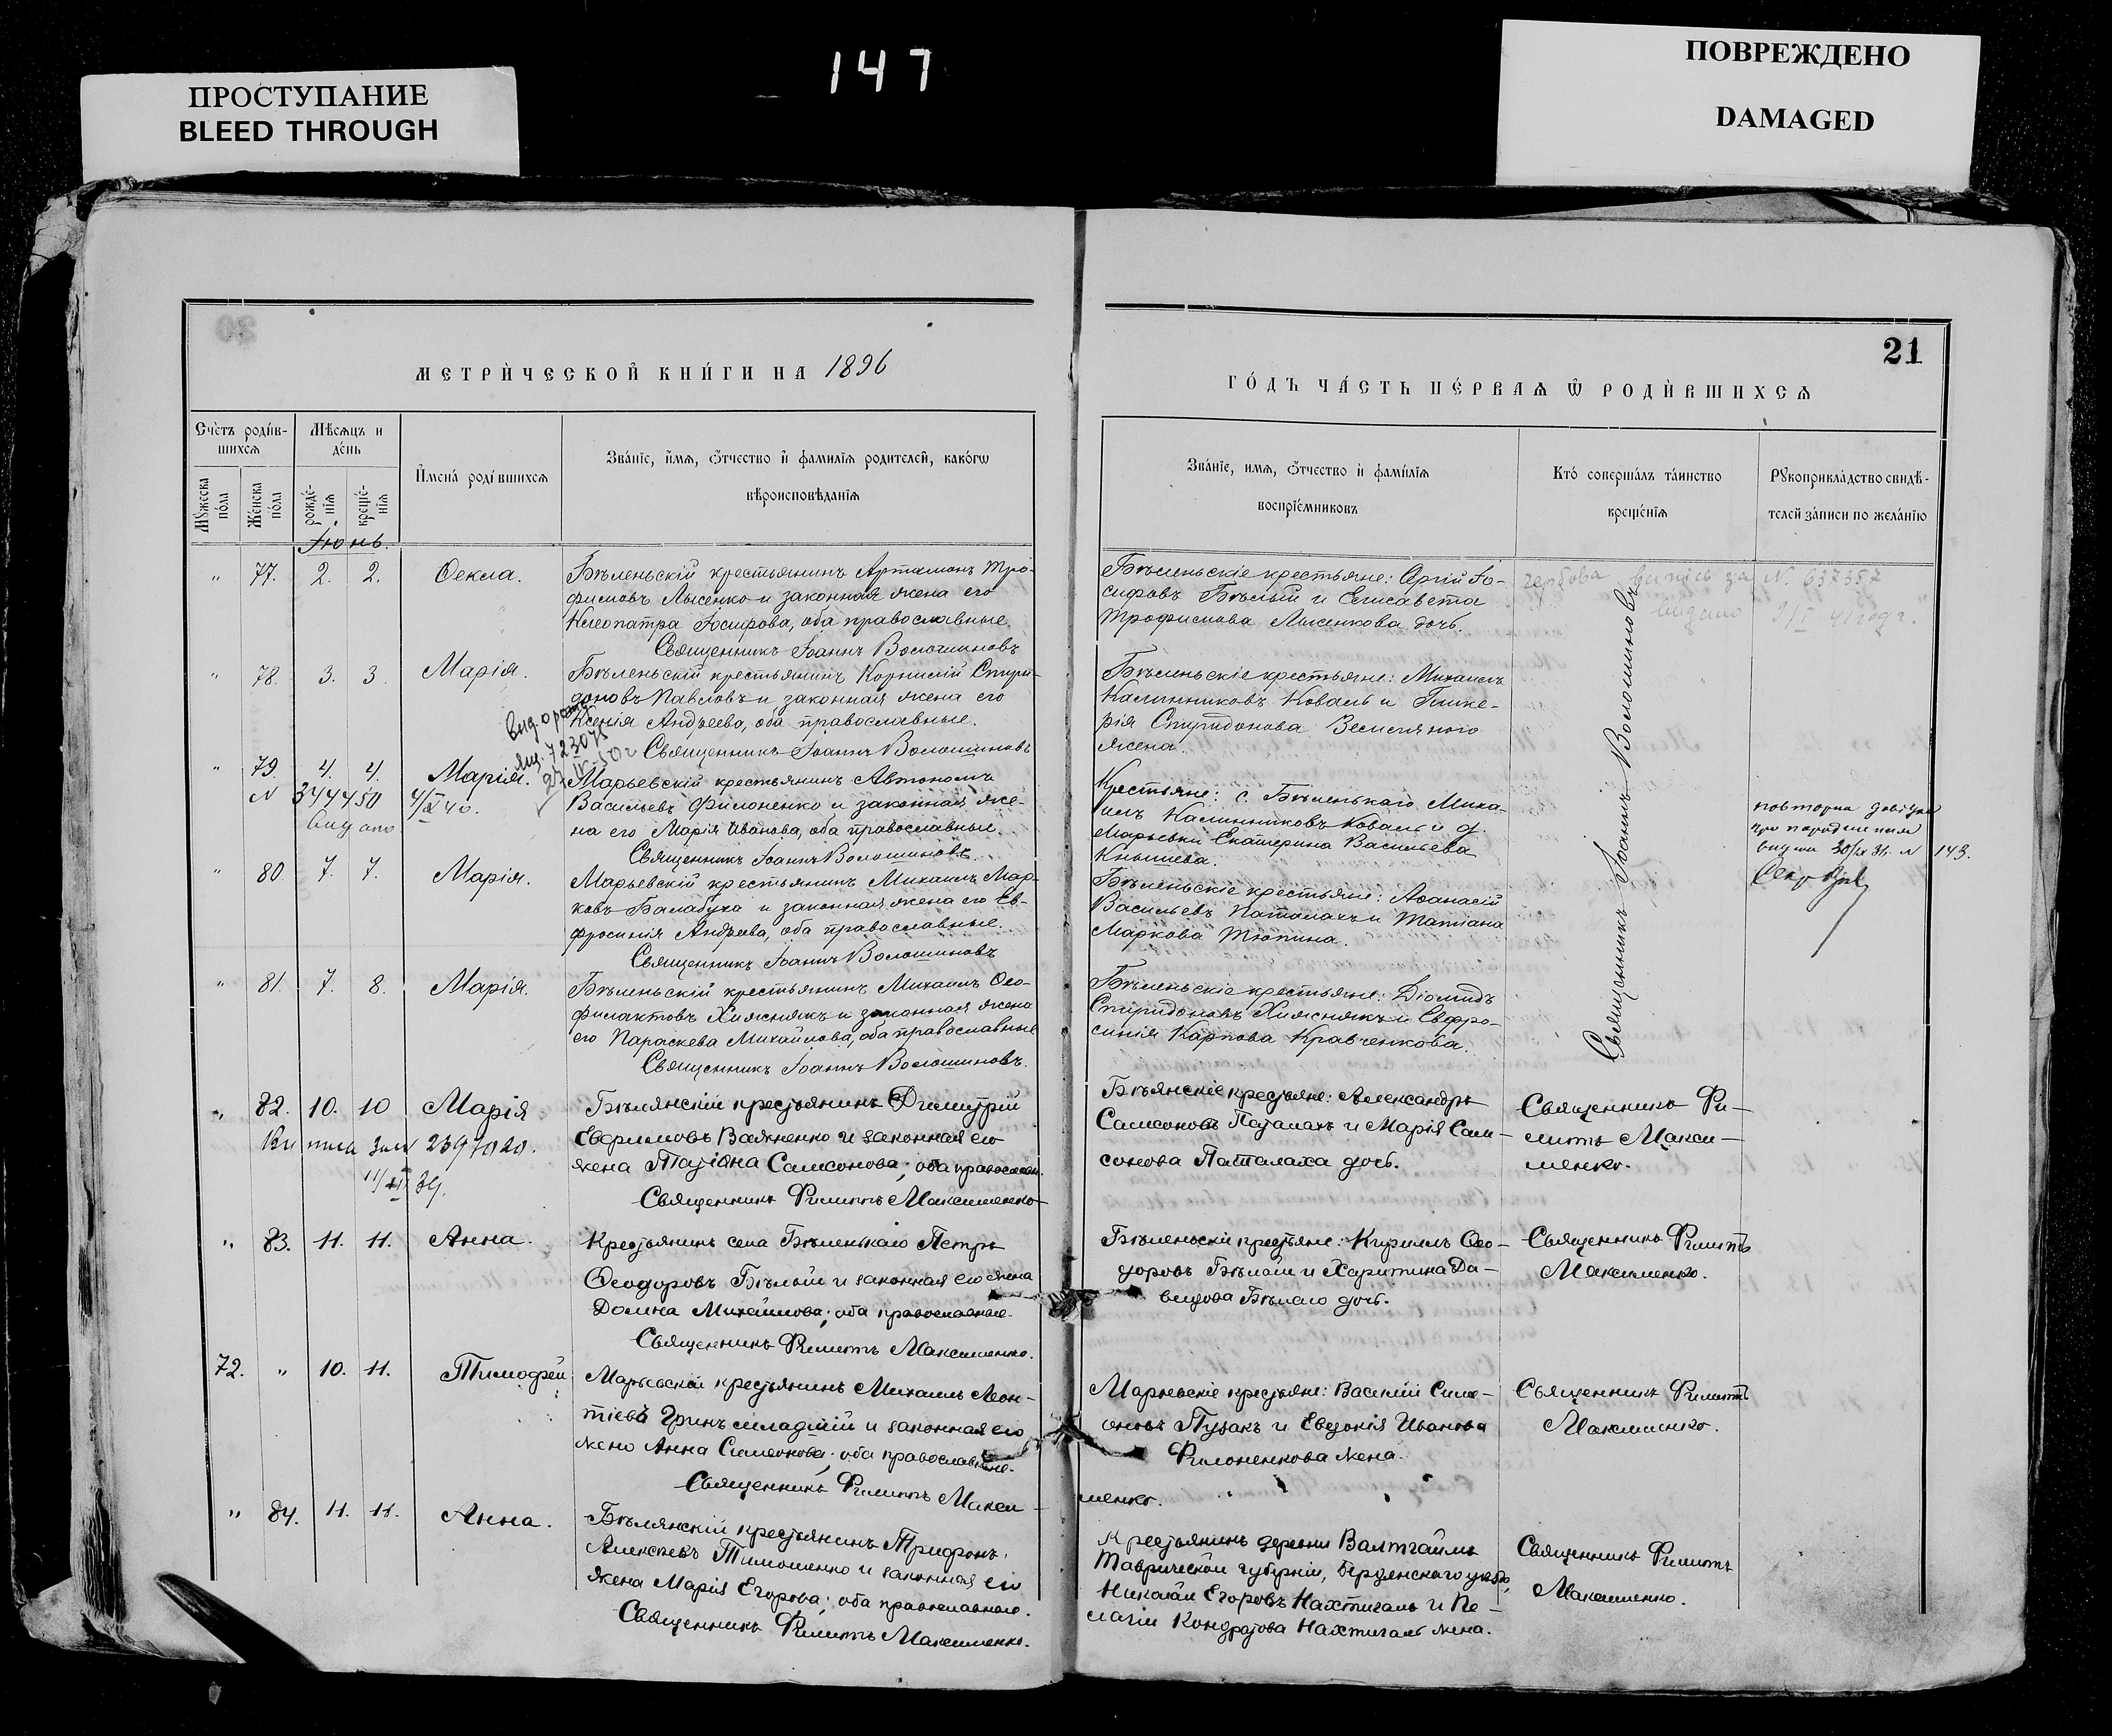 147
ПРОСТУПАНИЕ
BLEED THROUGH
ПОВРЕЖДЕНО
DAMAGED
МЕТРИ́ЧЕСКОЙ КНИ́ГИ НА 1896
ГО́ДЪ ЧА́СТЬ ПЕ́РВАѦ Ѿ РОДИ́ВШИХСѦ
21
Счетъ роди́в-
шихсѧ
Мѣсѧцъ и
де́нь
Имена́ роді́вшихсѧ
Зва́ніе, и́мѧ, ѻ́тчество и҆ фамилїѧ родителей, како́гѡ
вѣроисповѣданїѧ
Мꙋжеска
по́ла
Же́нска
по́ла
рожде́-
нїѧ
креще́-
нїѧ
Зва́ніе, имѧ, ѻ́тчество и҆ фами́лїѧ
воспріе́мниковъ
Кто́ соверша́лъ та́инство
креще́нїѧ
Рꙋкоприкла́дство свидѣ́-
телей за́писи по жела́нїю
Іюнь.
" 77. 2. 2. Ѳекла.
Бѣленьскій крестьянинъ Артамонъ Тро-
фимовъ Лысенко и законная жена его
Клеопатра Іосифова, оба православные.
Священникъ Іоаннъ Волошиновъ
Бѣленьскіе крестьяне: Сергій Іо-
сифовъ Бѣлый и Елисавета
Трофимова Лысенкова дочь.
гербова випись за N. 637357
видано
" 78. 3. 3. Марія.
Бѣленьскій крестьянинъ Корнилій Спири-
доновъ Павловъ и законная жена его
Ксенія Андреева, оба православные.
Священникъ Іоаннъ Волошиновъ
Бѣленьскіе крестьяне: Михаилъ
Калинниковъ Коваль и Глике-
рія Спиридонова Земляного
жена.
723075
" 79. 4. 4. Марія.
N 344450
видано
Марьевскій крестьянинъ Автономъ
Васильевъ Филоненко и законная же-
на его Марія Иванова, оба православные.
Священникъ Іоаннъ Волошиновъ
Крестьяне: с. Бѣленькаго Миха-
илъ Калинниковъ Коваль и д.
Марьевки Екатерина Васильева
Кнышева.
143.
" 80. 7. 7. Марія.
Марьевскій крестьянинъ Михаилъ Мар-
ковъ Балабуха и законная жена его Ев-
фросинія Андреева, оба православные.
Священникъ Іоаннъ Волошиновъ
Бѣленьскіе крестьяне: Аѳанасій
Васильевъ Паталахъ и Татіана
Маркова Тюпина.
" 81. 7. 8. Марія.
Бѣленьскій крестьянинъ Михаилъ Ѳео-
филактовъ Хижнякъ и законная жена
его Параскева Михайлова, оба православные
Священникъ Іоаннъ Волошиновъ.
Бѣленьскіе крестьяне: Діомидъ
Спиридоновъ Хижнякъ и Евфро-
синія Карпова Кравченкова.
Священникъ Іоаннъ Волошиновъ
" 82. 10. 10 Марія
2397020.
Бѣлянскій крестьянинъ Димитрій
Евфимовъ Важненко и законная его
жена Татіана Самсонова; оба православн.
Священникъ Филиппъ Максименко
Бѣлянскіе крестьяне: Александръ
Самсоновъ Паталахъ и Марія Сам-
сонова Паталаха дочь.
Священникъ Фи-
липпъ Макси-
менко.
" 83. 11. 11. Анна.
Крестьянинъ села Бѣленькаго Петръ
Ѳеодоровъ Бѣлый и законная его жена
Домна Михайлова; оба православные.
Священникъ Филиппъ Максименко.
Бѣленьскіе крестьяне: Кириллъ Ѳео-
доровъ Бѣлый и Харитина Да-
видова Бѣлаго дочь.
Священникъ Филиппъ
Максименко.
72. " 10. 11. Тимофей
Марьевскій крестьянинъ Михаилъ Леон-
тіевъ Гринь младшій и законная его
жена Анна Симеонова; оба православные.
Священникъ Филиппъ Макси-
менко.
Марьевскіе крестьяне: Василій Симе-
оновъ Пузакъ и Евдокія Иванова
Филоненкова жена.
Священникъ Филиппъ
Максименко.
" 84. 11. 11. Анна.
Бѣлянскій крестьянинъ Трифонъ
Алексѣевъ Тимошенко и законная его
жена Марія Егорова; оба православные.
Священникъ Филиппъ Максименко.
Крестьянинъ деревни Валтгаймъ
Таврической губерніи, Бердянскаго уѣзда,
Николай Егоровъ Нахтигаль и Пе-
лагія Кондратова Нахтигаль жена.
Священникъ Филиппъ
Максименко.